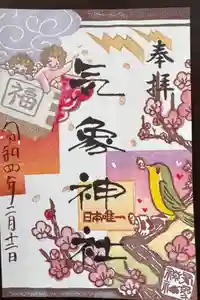 奉拝
気象神社
日本唯一
福
令和四年二月十三日